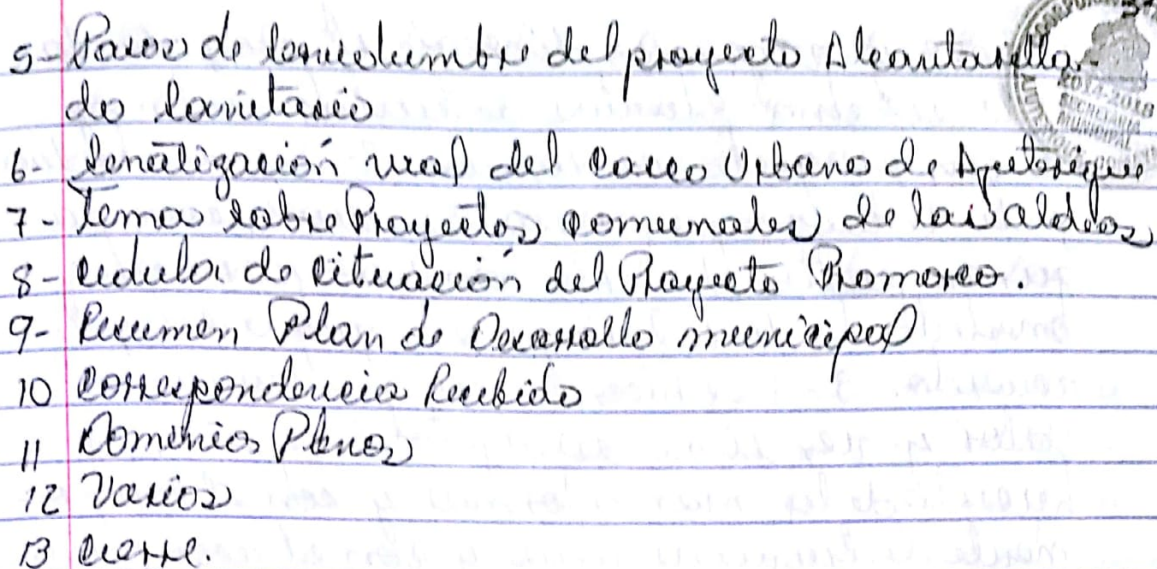 5- Pasos de servidumbre del proyecto Alcantarilla
do Sanitario
6- Señalización vial del casco Urbano de
7- Tema sobre Proyectos comunales de las aldeas
8- cedula de citación del Proyecto Promoreo.
9- Resumen Plan de Desarrollo municipal
10 correspondencia Recibido
11 Dominios Plenos
12 Varios
13 cierre.
MUNICIPAL